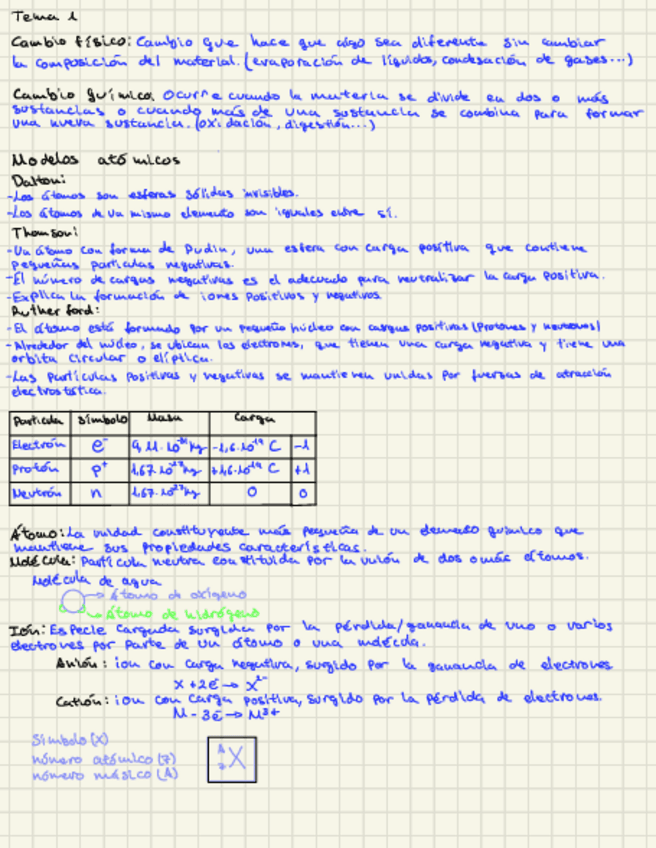 Tema 1
Cambio físico: Cambio que hace que algo sea diferente sin cambiar
la composición del material. (evaporación de líquidos, condesación de gases...)
Cambio químico: Ocurre cuando la materia se divide en dos o más
sustancias o cuando más de una sustancia se combina para formar
una nueva sustancia. (oxidación, digestión...)
Modelos atómicos
Dalton:
-Los átomos son esferas sólidas invisibles.
-Los átomos de un mismo elemento son iguales entre sí.
Thomson:
-Un átomo con forma de Pudin, una esfera con carga positiva que contiene
pequeñas partículas negativas.
-El número de cargas negativas es el adecuado para neutralizar la carga positiva.
-Explica la formación de iones positivos y negativos
Rutherford:
-El átomo está formado por un pequeño núcleo con cargas positivas (Protones y neutrones)
-Alrededor del núcleo, se ubican los electrones, que tienen una carga negativa y tiene una
orbita circular o elíptica.
-Las Partículas Positivas y negativas se mantienen unidas por fuerzas de atracción
electrostática.
Partícula símbolo Masa Carga
Electrón e⁻ 9,11·10⁻³¹kg -1,6·10⁻¹⁹ C -1
Protón p⁺ 1,67·10⁻²⁷kg +1,6·10⁻¹⁹ C +1
Neutrón n 1,67·10⁻²⁷kg 0 0
Átomo: La unidad constituyente más pequeña de un elemento químico que
mantiene sus propiedades características.
Molécula: Partícula neutra constituida por la unión de dos o más átomos.
Molécula de agua
→ Átomo de oxígeno
→ Átomo de hidrógeno
Ión: Especie Cargada surgida por la pérdida/ganancia de uno o varios
electrones por parte de un átomo o una molécula.
Anión: ion con Carga negativa, sugido por la ganancia de electrones
X + 2e⁻ → X²⁻
Catión: ion con Carga positiva, surgido por la pérdida de electrones.
M - 3e⁻ → M³⁺
Símbolo (X)
número atómico (Z)
número másico (A)
A
Z X